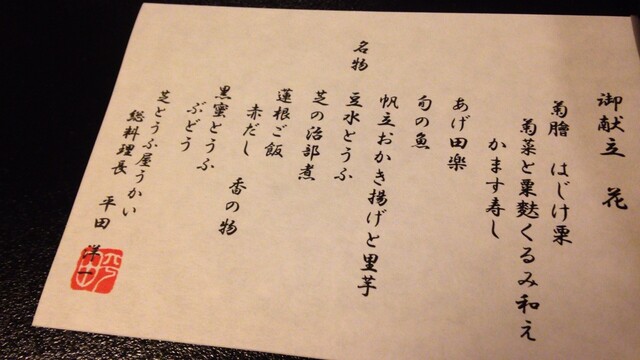 御献立　花
菊膾　はじけ栗
菊菜と粟麩くるみ和え
かます寿し
あげ田楽
旬の魚
帆立おかき揚げと里芋
名物　豆水とうふ
芝の治部煮
蓮根ご飯
赤だし　香の物
黒蜜とうふ
ぶどう
芝とうふ屋うかい
総料理長　平田　洋一